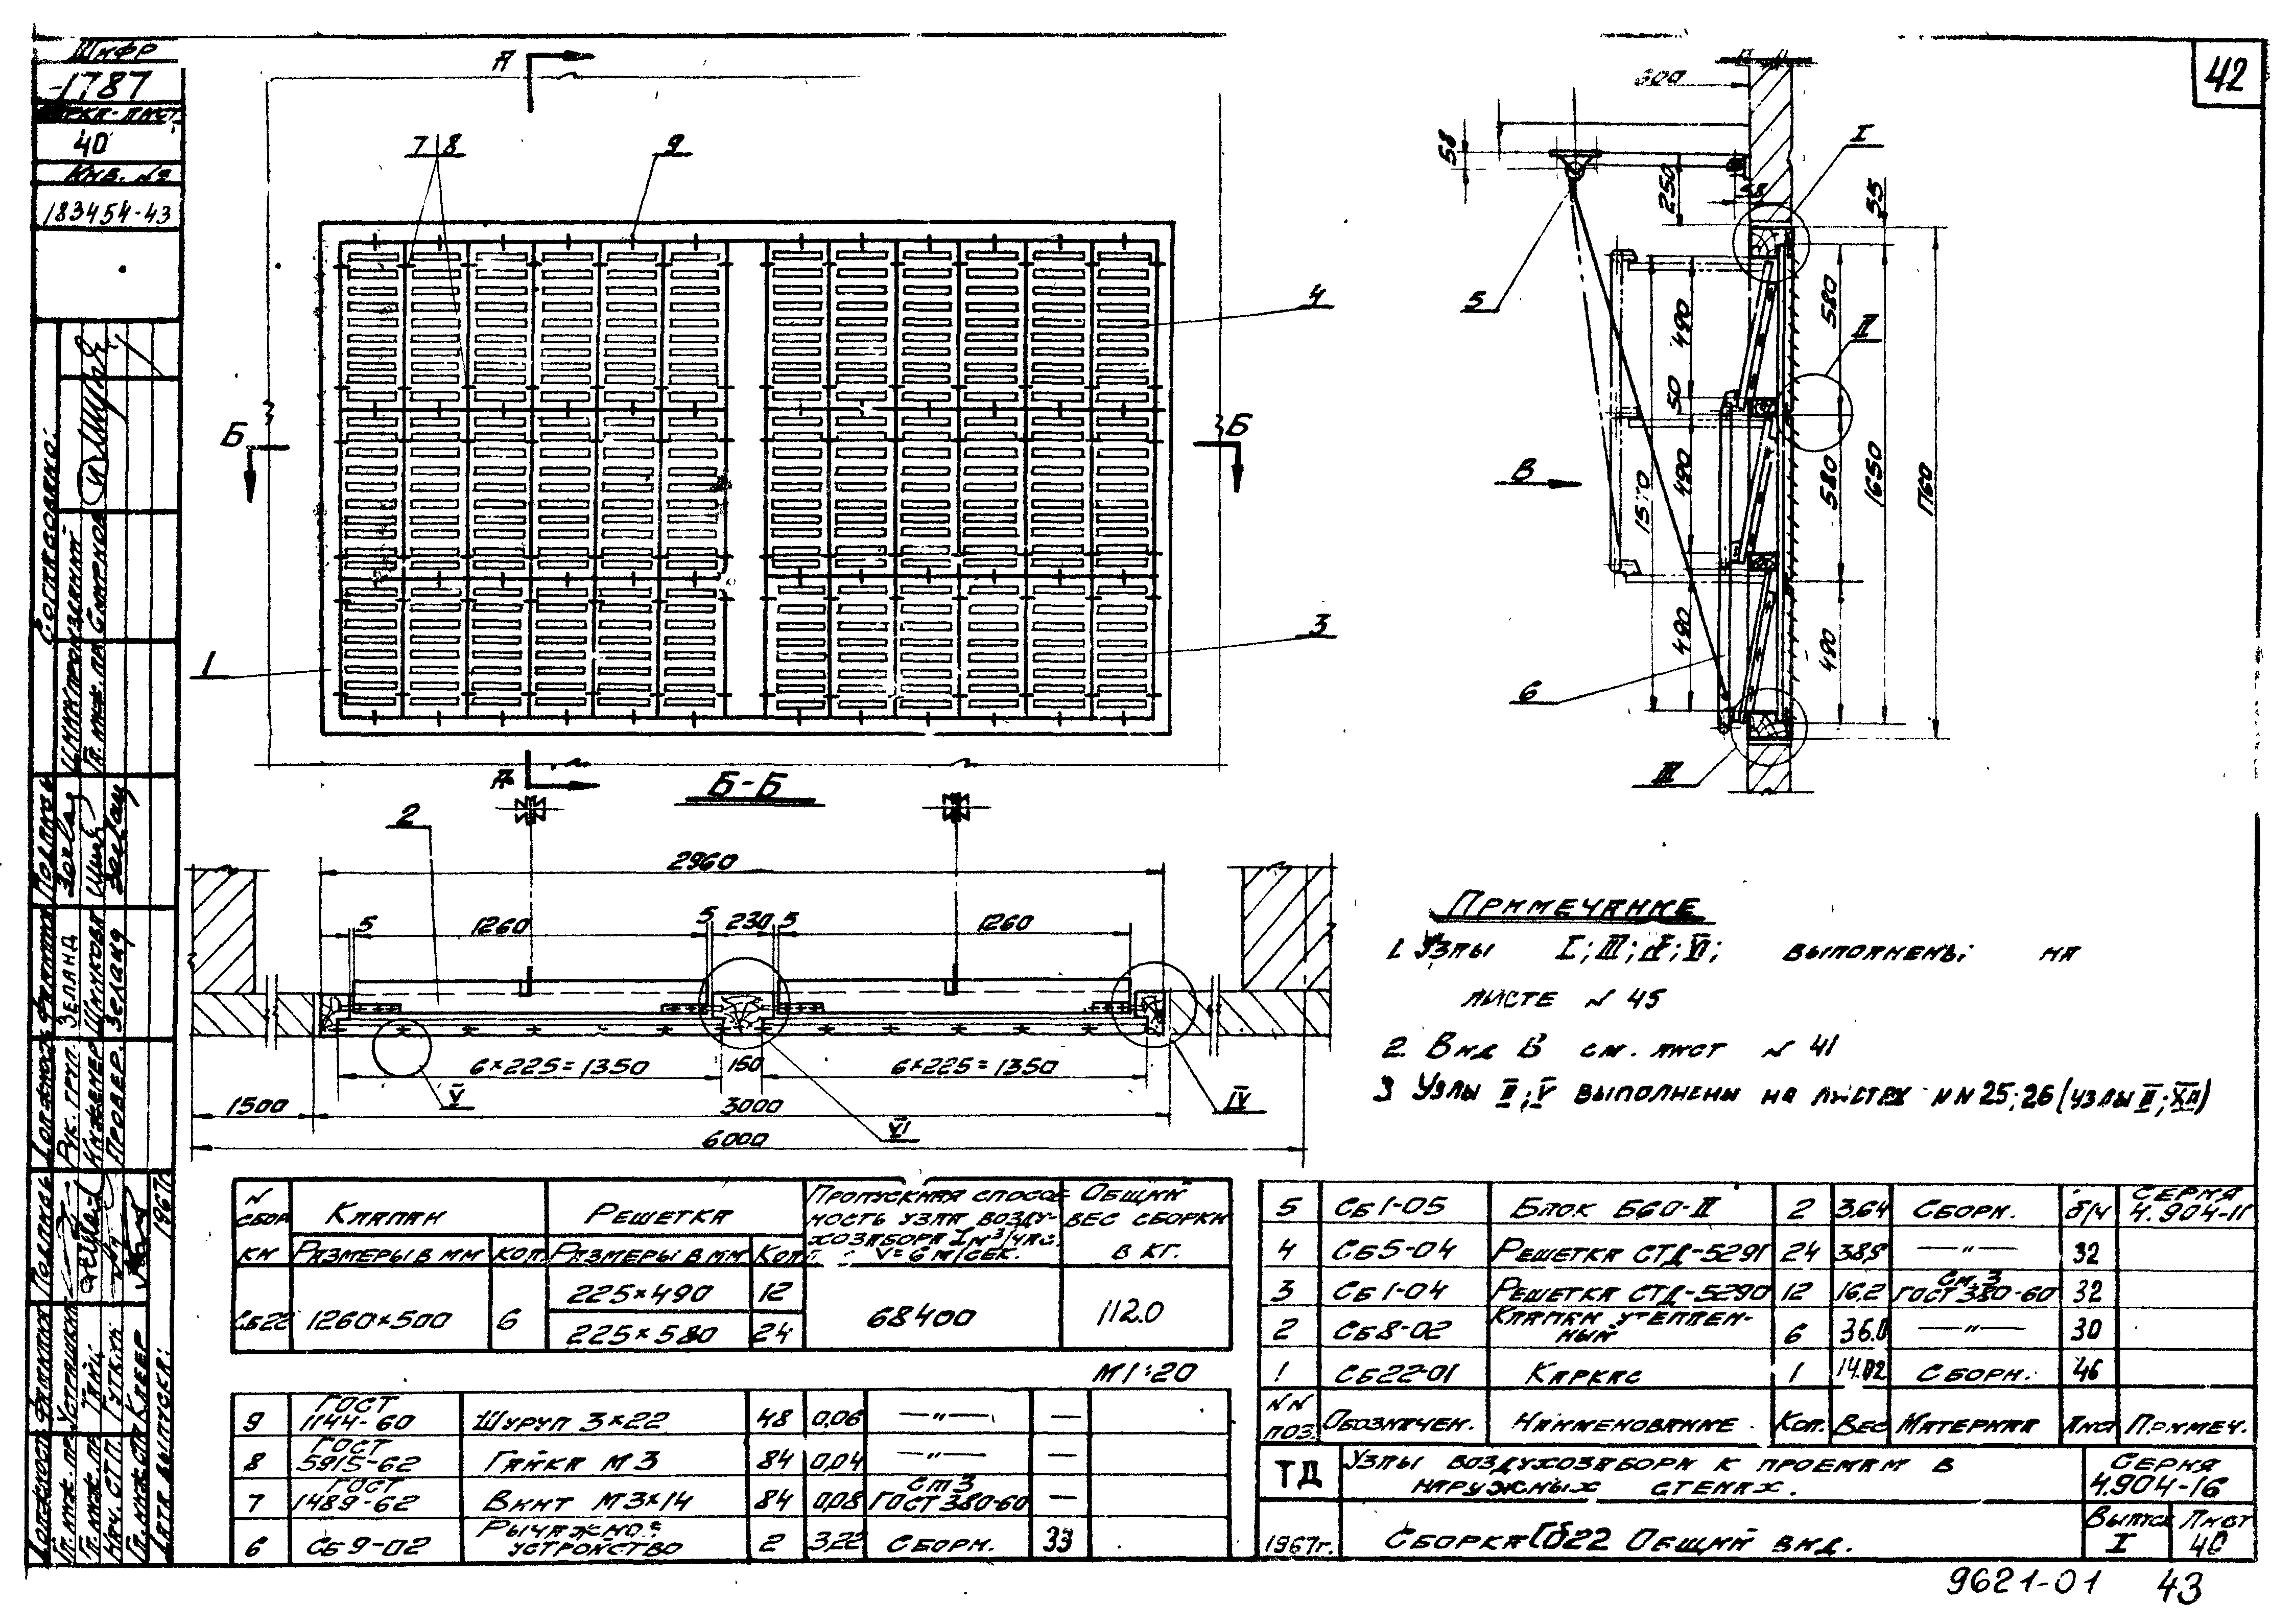 42
Шифр
1787
40
Инв. №
183454-43
Согласовано:
А
7 8
9
4
3
1
Б
Б
А
300
58
250
58
I
55
5
490
580
II
50
В
1510
490
580
1650
1760
490
490
6
III
Б-Б
2
2960
5
1260
5
230
5
1260
6×225=1350
150
6×225=1350
V
VI
IV
1500
3000
6000
Примечание
1. Узлы I; III; IV; VI; выполнены на
листе № 45
2. Вид В см. лист № 41
3 Узлы II; V выполнены на листах NN 25; 26 (узлы II; XII)
№ сборки
Клапан
Решетка
Пропускная способность узла воздухозабора L м³/час.
V=6 м/сек.
Общий вес сборки в кг.
Размеры в мм
Кол.
Размеры в мм
Кол.
Сб22
1260×500
6
225×490
12
225×580
24
68400
112.0
М 1:20
9 ГОСТ 1144-60 Шуруп 3×22 48 0,06 —"— —
8 ГОСТ 5915-62 Гайка М3 84 0,04 —"— —
7 ГОСТ 1489-62 Винт М3×14 84 0,08 ст 3 ГОСТ 380-60 —
6 Сб 9-02 Рычажное устройство 2 3,22 Сборн. 33
5 Сб 1-05 Блок Б60-II 2 3.64 Сборн. б/ч Серия 4.904-11
4 Сб 5-04 Решетка СТД-5291 24 —"— 32
3 Сб 1-04 Решетка СТД-5290 12 16.2 См. 3 ГОСТ 380-60 32
2 Сб 8-02 Клапан утепленный 6 36.0 —"— 30
1 Сб22-01 Каркас 1 14.02 Сборн. 46
NN поз. Обозначен. Наименование Кол. Вес Материал Лист Примеч.
ТД
Узлы воздухозабора к проемам в
наружных стенах.
Серия
4.904-16
1967г.
Сборка Сб22 Общий вид.
Выпуск I
Лист 40
9621-01 43
Должность Фамилия Подпись
Рук. груп. Зеланд
Инженер Шишкова
Провер. Зеланд
Нач. СТП Гуткин
Дата выпуска: 1967г.